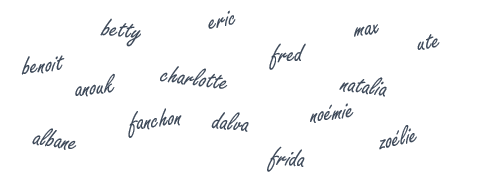 betty
eric
max
ute
benoit
anouk
charlotte
fred
natalia
albane
fanchon
dalva
noémie
zoélie
frida